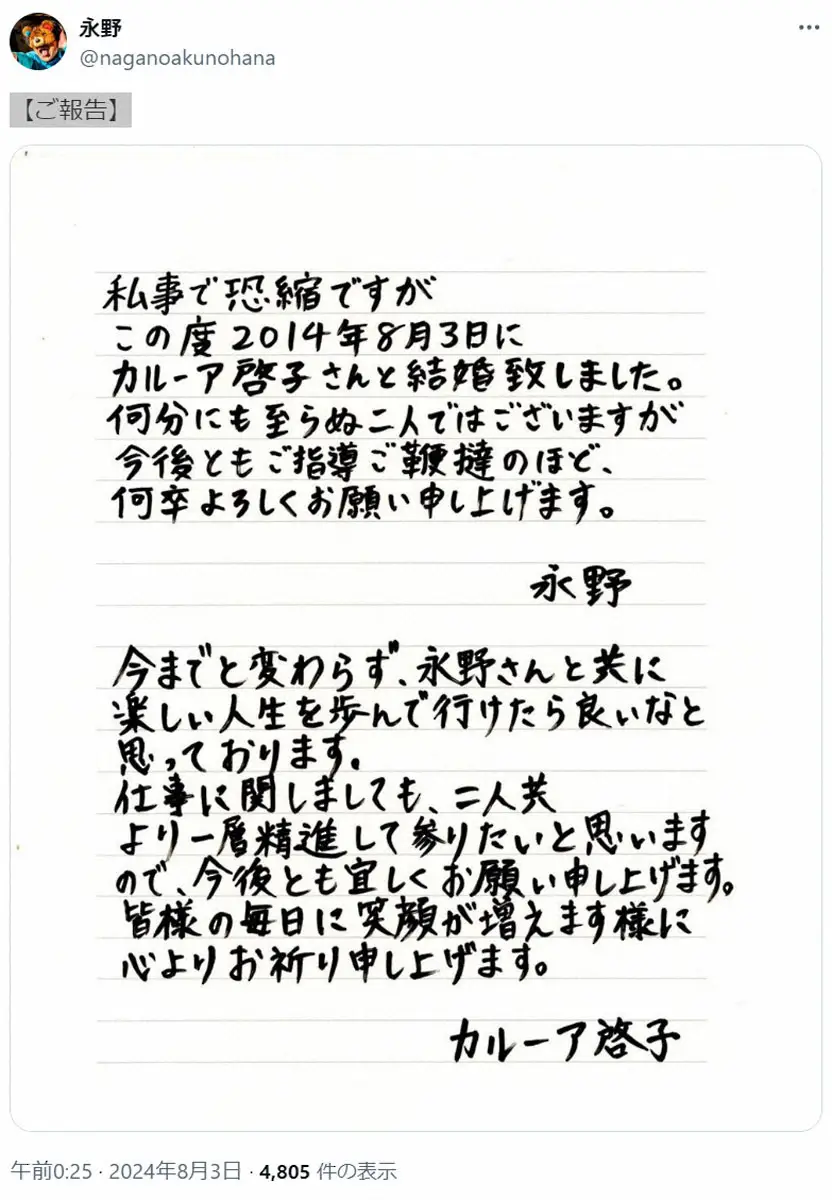 永野
@naganoakunohana
【ご報告】
私事で恐縮ですが
この度2014年8月3日に
カルーア啓子さんと結婚致しました。
何分にも至らぬ二人ではございますが
今後ともご指導ご鞭撻のほど、
何卒よろしくお願い申し上げます。
永野
今までと変わらず、永野さんと共に
楽しい人生を歩んで行けたら良いなと
思っております。
仕事に関しましても、二人共
より一層精進して参りたいと思います
ので、今後とも宜しくお願い申し上げます。
皆様の毎日に笑顔が増えます様に
心よりお祈り申し上げます。
カルーア啓子
午前0:25 · 2024年8月3日 · 4,805 件の表示